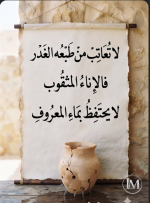 لا تُعَاتِبْ مَنْ طَبْعُه الغَدْر
فالإِناءُ المثقُوب
لا يحتَفِظُ بِمَاءِ المعرُوفِ